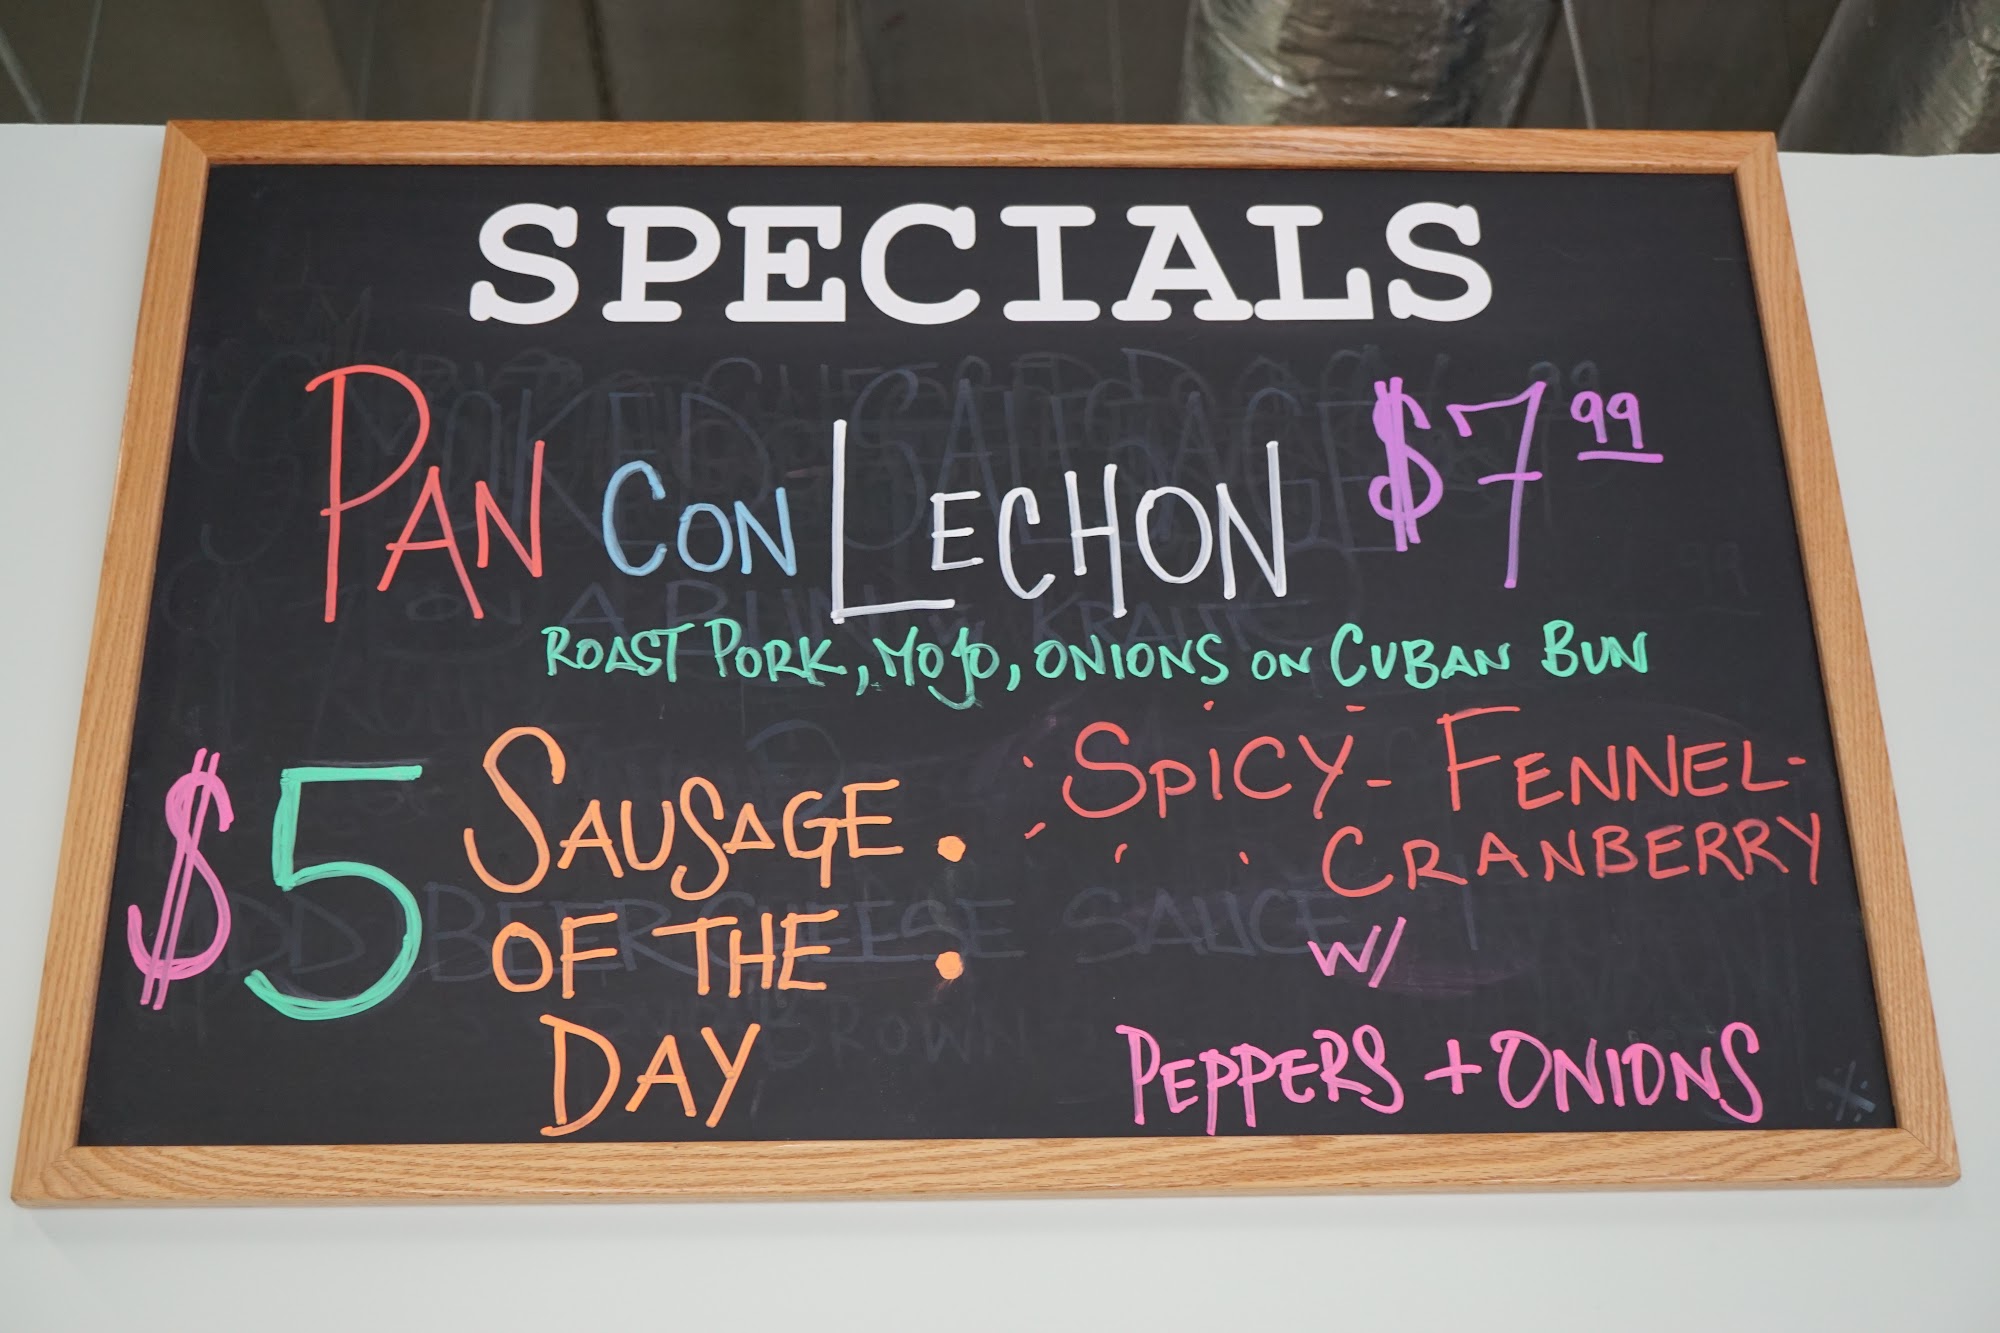 SPECIALS
PAN CON LECHON $7.99
ROAST PORK, MOJO, ONIONS ON CUBAN BUN
$5 SAUSAGE OF THE DAY :
SPICY - FENNEL-
CRANBERRY
W/
PEPPERS + ONIONS